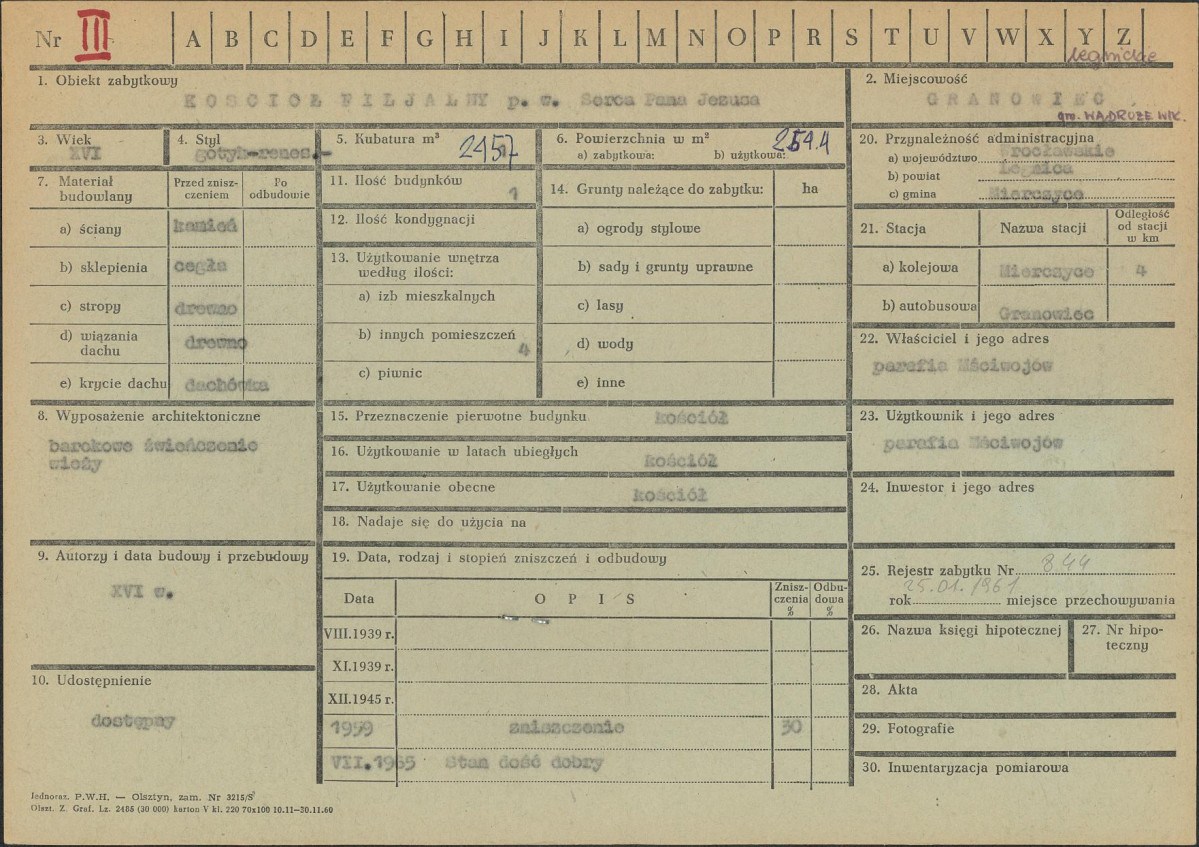 Nr III A B C D E F G H I J K L M N O P R S T U V W X Y Z
legnickie
1. Obiekt zabytkowy
KOŚCIOŁ FILJALNY p. w. Serca Pana Jezusa
2. Miejscowość
GRANOWIEC
gm. WĄDROŻE WLK.
3. Wiek
XVI
4. Styl
gotyk-renes.-
5. Kubatura m³
2457
6. Powierzchnia w m²
a) zabytkowa: b) użytkowa:
254.4
7. Materiał budowlany
Przed zniszczeniem
Po odbudowie
a) ściany kamień
b) sklepienia cegła
c) stropy drewno
d) wiązania dachu drewno
e) krycie dachu dachówka
8. Wyposażenie architektoniczne
barokowe świeńczenie
wieży
9. Autorzy i data budowy i przebudowy
XVI w.
10. Udostępnienie
dostępny
11. Ilość budynków
1
12. Ilość kondygnacji
13. Użytkowanie wnętrza
według ilości:
a) izb mieszkalnych
b) innych pomieszczeń
4
c) piwnic
14. Grunty należące do zabytku: ha
a) ogrody stylowe
b) sady i grunty uprawne
c) lasy
d) wody
e) inne
15. Przeznaczenie pierwotne budynku kościół
16. Użytkowanie w latach ubiegłych kościół
17. Użytkowanie obecne kościół
18. Nadaje się do użycia na
19. Data, rodzaj i stopień zniszczeń i odbudowy
Data O P I S Zniszczenia % Odbudowa %
VIII.1939 r.
XI.1939 r.
XII.1945 r.
1959 zniszczenie 30
VII.1965 Stan dość dobry
20. Przynależność administracyjna
a) województwo Wrocławskie
b) powiat Legnica
c) gmina Mierczyce
21. Stacja Nazwa stacji Odległość od stacji w km
a) kolejowa Mierczyce 4
b) autobusowa Granowiec
22. Właściciel i jego adres
parafia Mściwojów
23. Użytkownik i jego adres
parafia Mściwojów
24. Inwestor i jego adres
25. Rejestr zabytku Nr 844
25.01.1961
rok miejsce przechowywania
26. Nazwa księgi hipotecznej
27. Nr hipoteczny
28. Akta
29. Fotografie
30. Inwentaryzacja pomiarowa
Jednoraz. P.W.H. — Olsztyn, zam. Nr 3215/S
Olszt. Z. Graf. Lz. 2485 (30 000) karton V kl. 220 70x100 10.11—30.11.60